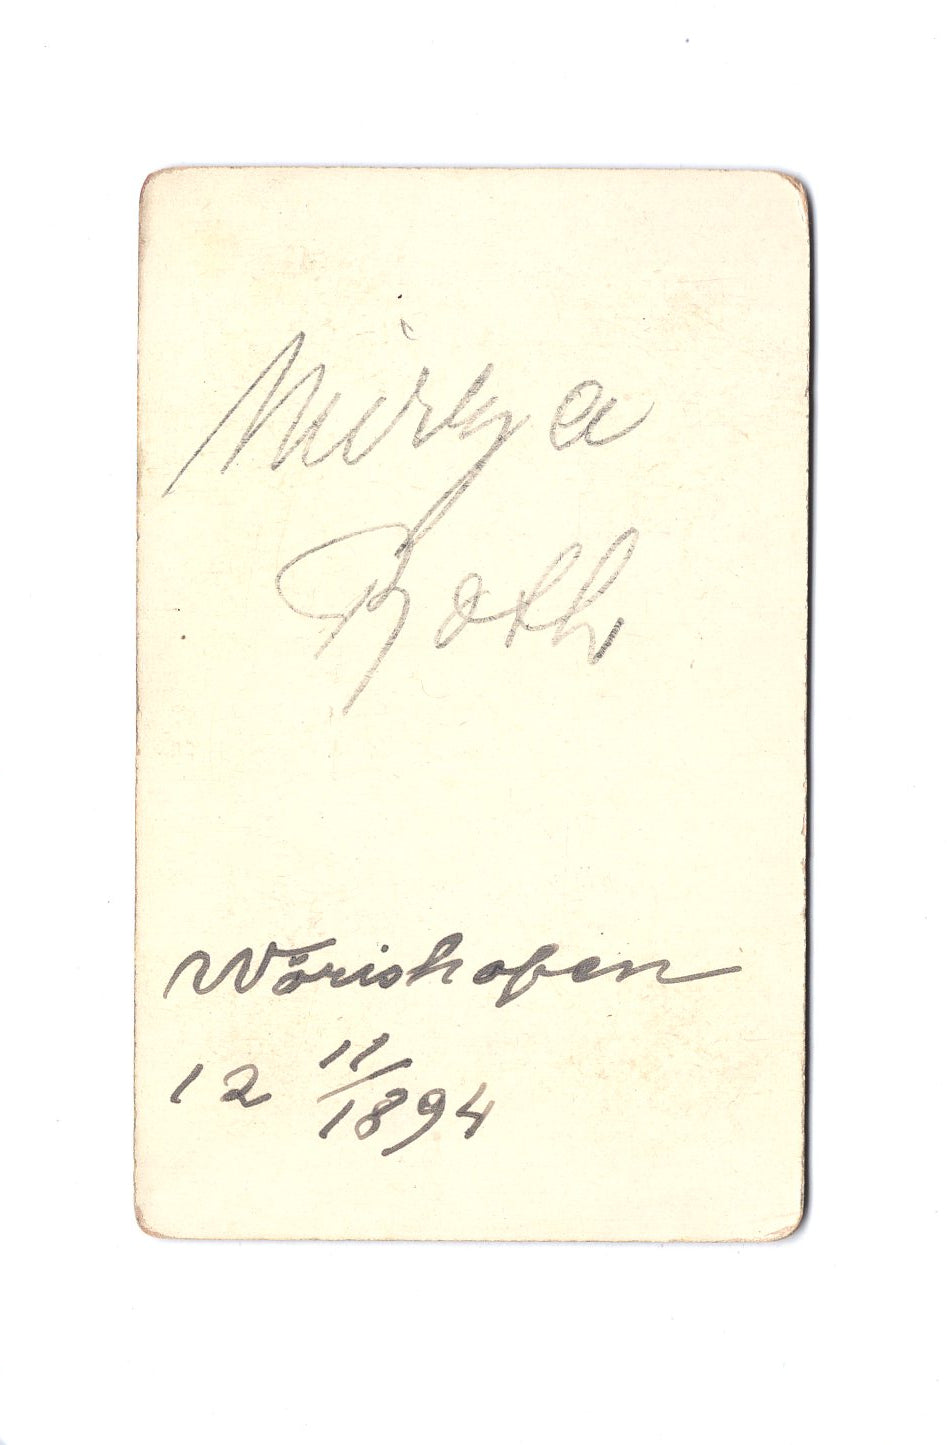 Roth
Wörishofen
12 11/1894